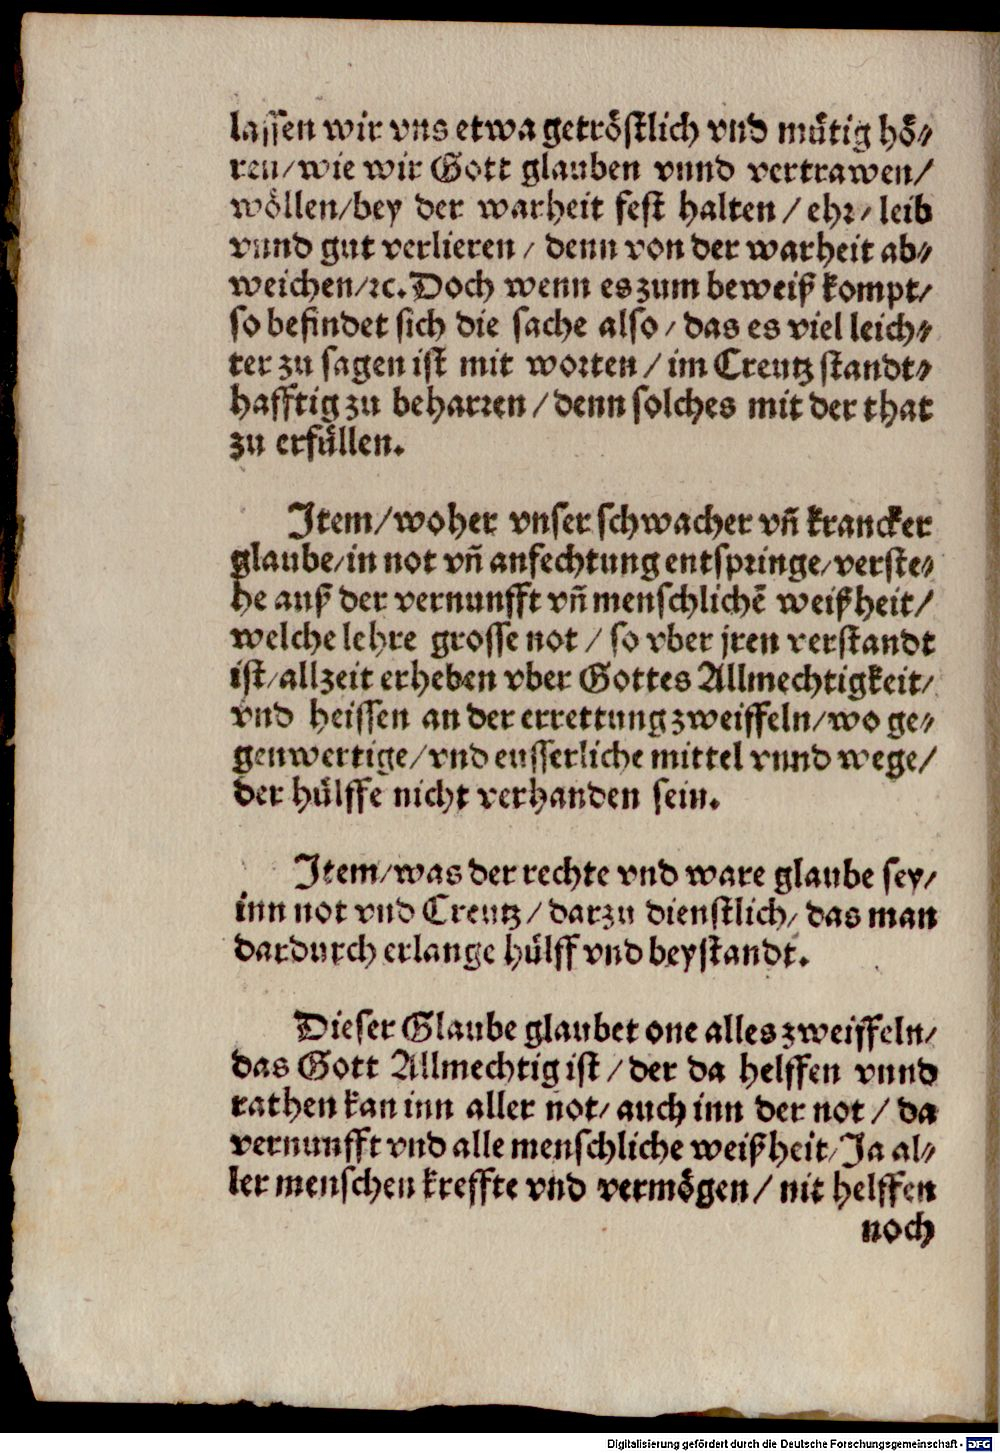 lassen wir vns etwa getröstlich vnd mütig hö⸗
ren/wie wir Gott glauben vnnd vertrawen/
wöllen/bey der warheit fest halten / ehꝛ/ leib
vnnd gut verlieren / denn von der warheit ab⸗
weichen/ꝛc. Doch wenn es zum beweiß kompt/
so befindet sich die sache also / das es viel leich⸗
ter zu sagen ist mit woꝛten / im Creutz standt⸗
hafftig zu beharꝛen / denn solches mit der that
zu erfüllen.
Item/woher vnser schwacher vñ krancker
glaube/in not vñ anfechtung entspꝛinge/verste⸗
he auß der vernunfft vñ menschlichẽ weißheit/
welche lehre grosse not / so vber jren verstandt
ist/allzeit erheben vber Gottes Allmechtigkeit/
vnd heissen an der errettung zweiffeln/wo ge⸗
genwertige/vnd eusserliche mittel vnnd wege/
der hülffe nicht verhanden sein.
Item/was der rechte vnd ware glaube sey/
inn not vnd Creutz / darzu dienstlich/ das man
dardurch erlange hülff vnd beystandt.
Dieser Glaube glaubet one alles zweiffeln/
das Gott Allmechtig ist / der da helffen vnnd
rathen kan inn aller not/ auch inn der not / da
vernunfft vnd alle menschliche weißheit/Ja al⸗
ler menschen kreffte vnd vermögen/ nit helffen
noch
Digitalisierung gefördert durch die Deutsche Forschungsgemeinschaft - DFG